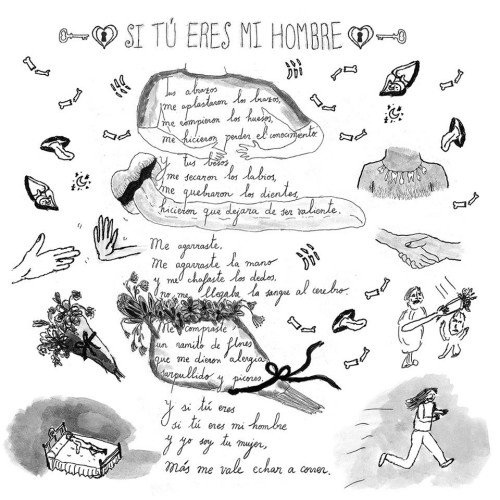 SI TÚ ERES MI HOMBRE
Tus abrazos
me aplastaron los brazos,
me rompieron los huesos,
me hicieron perder el conocimiento.
Y tus besos
me secaron los labios,
me quebraron los dientes,
hicieron que dejara de ser valiente.
Me agarraste,
Me agarraste la mano
y me chafaste los dedos,
no me llegaba la sangre al cerebro.
Me compraste
un ramito de flores
que me dieron alergia
sarpullido y picores.
Y si tú eres
si tú eres mi hombre
y yo soy tu mujer,
Más me vale echar a correr.